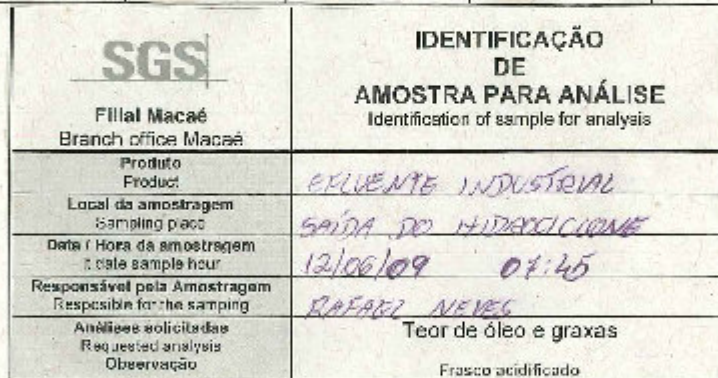 SGS
Filial Macaé
Branch office Macaé
IDENTIFICAÇÃO
DE
AMOSTRA PARA ANÁLISE
Identification of sample for analysis
Produto
Product
EFLUENTE INDUSTRIAL
Local da amostragem
Sampling place
SAÍDA DO HIDROCICLONE
Data / Hora da amostragem
t date sample hour
12/06/09 07:45
Responsável pela Amostragem
Resposible for the samping
RAFAEL NEVES
Análises solicitadas
Requested analysis
Observação
Teor de óleo e graxas
Frasco acidificado